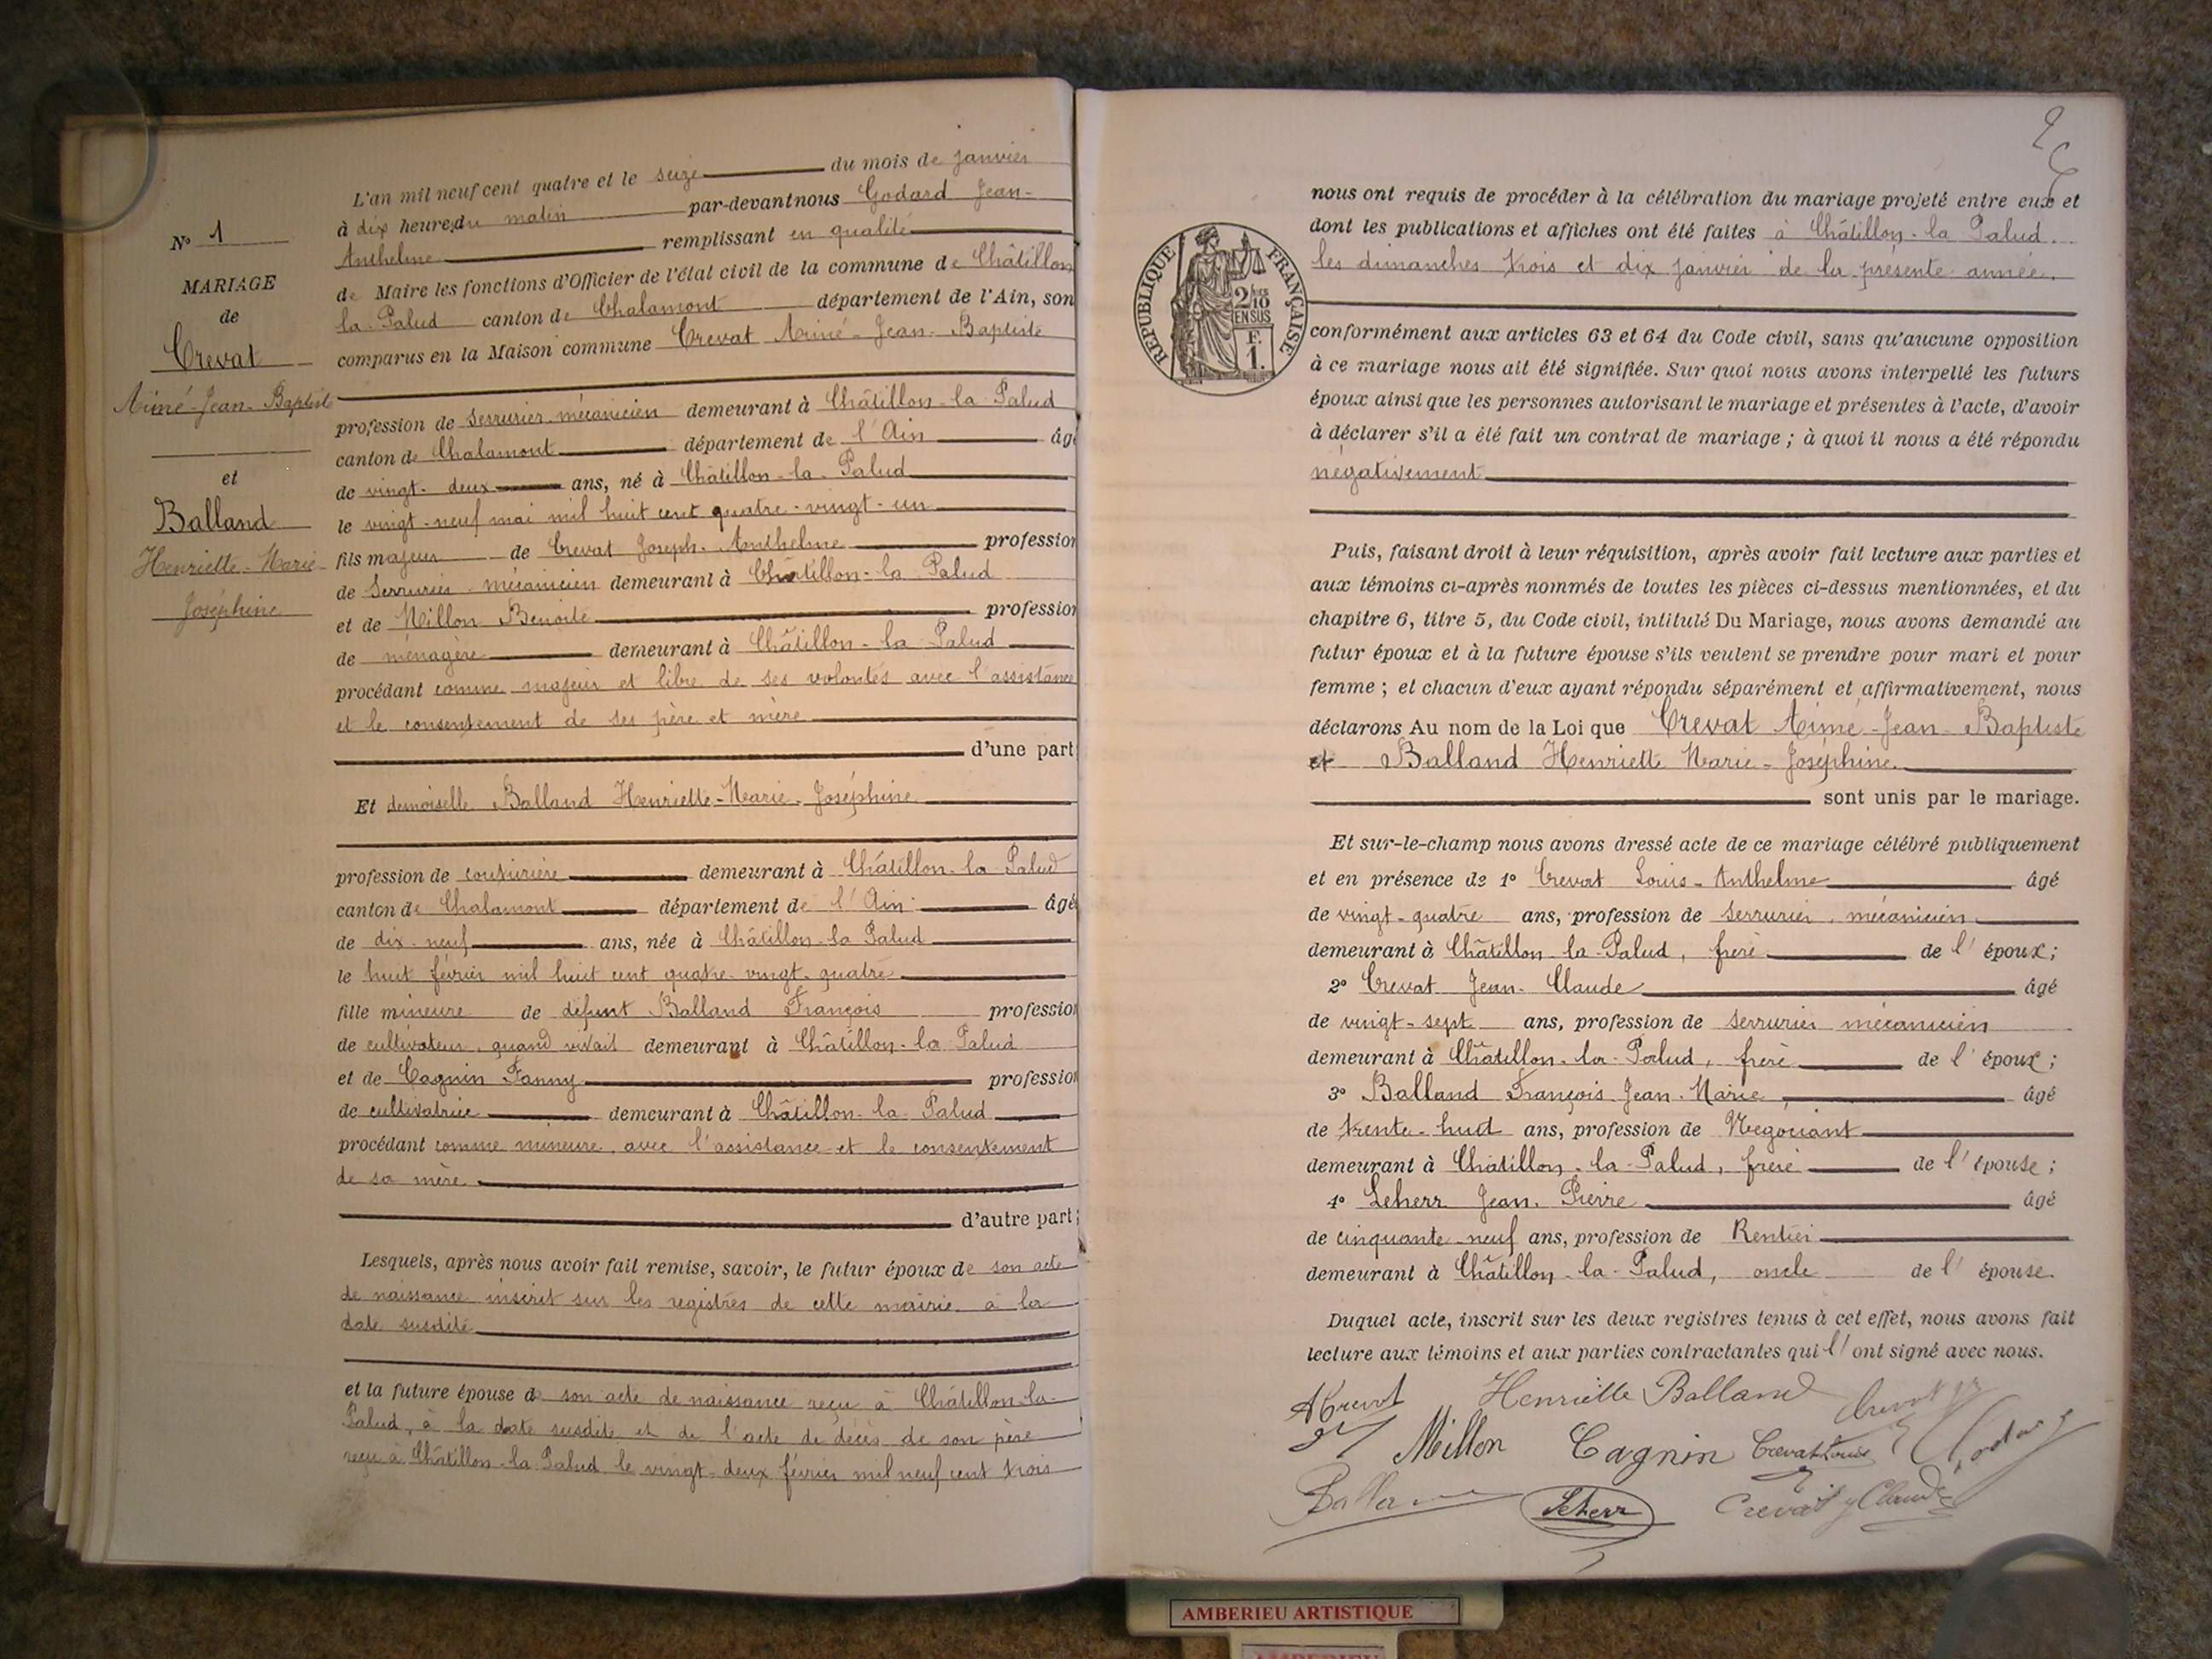 L'an mil neuf cent quatre et le seize du mois de janvier
à dix heures du matin par-devant nous Godard Jean-
Anthelme remplissant en qualité
de Maire les fonctions d'Officier de l'état civil de la commune de Châtillon
la-Palud canton de Chalamont département de l'Ain, son
comparus en la Maison commune Crevat Aimé-Jean-Baptiste
N° 1
MARIAGE
de
Crevat
Aimé-Jean-Baptiste
et
Balland
Henriette-Marie
Joséphine
profession de serrurier-mécanicien demeurant à Châtillon-la-Palud
canton de Chalamont département de l'Ain âgé
de vingt-deux ans, né à Châtillon-la-Palud
le vingt-neuf mai mil huit cent quatre-vingt-un
fils majeur de Crevat Joseph-Anthelme profession
de serrurier-mécanicien demeurant à Châtillon-la-Palud
et de Millon Benoite profession
de ménagère demeurant à Châtillon-la-Palud
procédant comme majeur et libre de ses volontés avec l'assistance
et le consentement de ses père et mère
d'une part
Et demoiselle Balland Henriette-Marie-Joséphine
profession de couturière demeurant à Châtillon-la-Palud
canton de Chalamont département de l'Ain âgé
de dix-neuf ans, née à Châtillon-la-Palud
le huit février mil huit cent quatre-vingt-quatre
fille mineure de défunt Balland François profession
de cultivateur quand vivait demeurant à Châtillon-la-Palud
et de Cagnin Fanny profession
de cultivatrice demeurant à Châtillon-la-Palud
procédant comme mineure avec l'assistance et le consentement
de sa mère
d'autre part;
Lesquels, après nous avoir fait remise, savoir, le futur époux de son acte
de naissance inscrit sur les registres de cette mairie à la
date susdite
et la future épouse de son acte de naissance reçu à Châtillon-la-
Palud, à la date susdite et de l'acte de décès de son père
reçu à Châtillon-la-Palud le vingt-deux février mil neuf cent trois
2
nous ont requis de procéder à la célébration du mariage projeté entre eux et
dont les publications et affiches ont été faites à Châtillon-la-Palud
les dimanches trois et dix janvier de la présente année.
RÉPUBLIQUE FRANÇAISE
2/10
EN SUS
F.
1.
conformément aux articles 63 et 64 du Code civil, sans qu'aucune opposition
à ce mariage nous ait été signifiée. Sur quoi nous avons interpellé les futurs
époux ainsi que les personnes autorisant le mariage et présentes à l'acte, d'avoir
à déclarer s'il a été fait un contrat de mariage ; à quoi il nous a été répondu
négativement
Puis, faisant droit à leur réquisition, après avoir fait lecture aux parties et
aux témoins ci-après nommés de toutes les pièces ci-dessus mentionnées, et du
chapitre 6, titre 5, du Code civil, intitulé Du Mariage, nous avons demandé au
futur époux et à la future épouse s'ils veulent se prendre pour mari et pour
femme ; et chacun d'eux ayant répondu séparément et affirmativement, nous
déclarons Au nom de la Loi que Crevat Aimé-Jean-Baptiste
et Balland Henriette Marie-Joséphine
sont unis par le mariage.
Et sur-le-champ nous avons dressé acte de ce mariage célébré publiquement
et en présence de 1° Crevat Louis-Anthelme âgé
de vingt-quatre ans, profession de serrurier-mécanicien
demeurant à Châtillon-la-Palud, frère de l'époux;
2° Crevat Jean-Claude âgé
de vingt-sept ans, profession de serrurier mécanicien
demeurant à Châtillon-la-Palud, frère de l'époux;
3° Balland François Jean-Marie, âgé
de trente-huit ans, profession de Négociant
demeurant à Châtillon-la-Palud, frère de l'épouse;
4° Leherr Jean-Pierre âgé
de cinquante-neuf ans, profession de Rentier
demeurant à Châtillon-la-Palud, oncle de l'épouse.
Duquel acte, inscrit sur les deux registres tenus à cet effet, nous avons fait
lecture aux témoins et aux parties contractantes qui l'ont signé avec nous.
A Crevat Henriette Balland Crevat
Millon Cagnin Crevat Louis Godard
Balland Leherr Crevat J Claude
AMBERIEU ARTISTIQUE
AMBERIEU